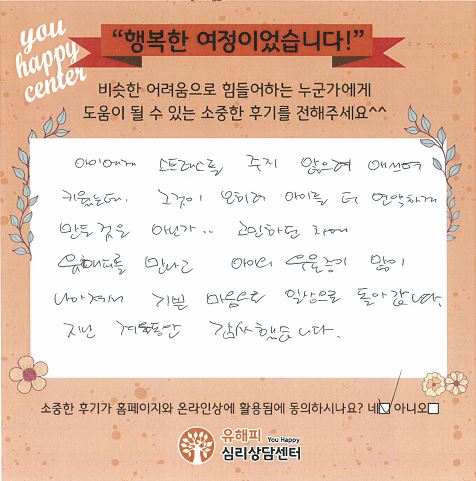 you
happy
center
“행복한 여정이었습니다!”
비슷한 어려움으로 힘들어하는 누군가에게
도움이 될 수 있는 소중한 후기를 전해주세요^^
아이에게 스트레스를 주지 않으며 애쓰며
키웠는데. 그것이 오히려 아이를 더 연약하게
만든 것은 아닌가.. 고민하던 차에
유해피를 만나고 아이의 우울증이 많이
나아져서 기쁜 마음으로 일상으로 돌아갑니다.
지난 겨울동안 감사했습니다.
소중한 후기가 홈페이지와 온라인상에 활용됨에 동의하시나요? 네☑ 아니오☐
유해피 You Happy
심리상담센터